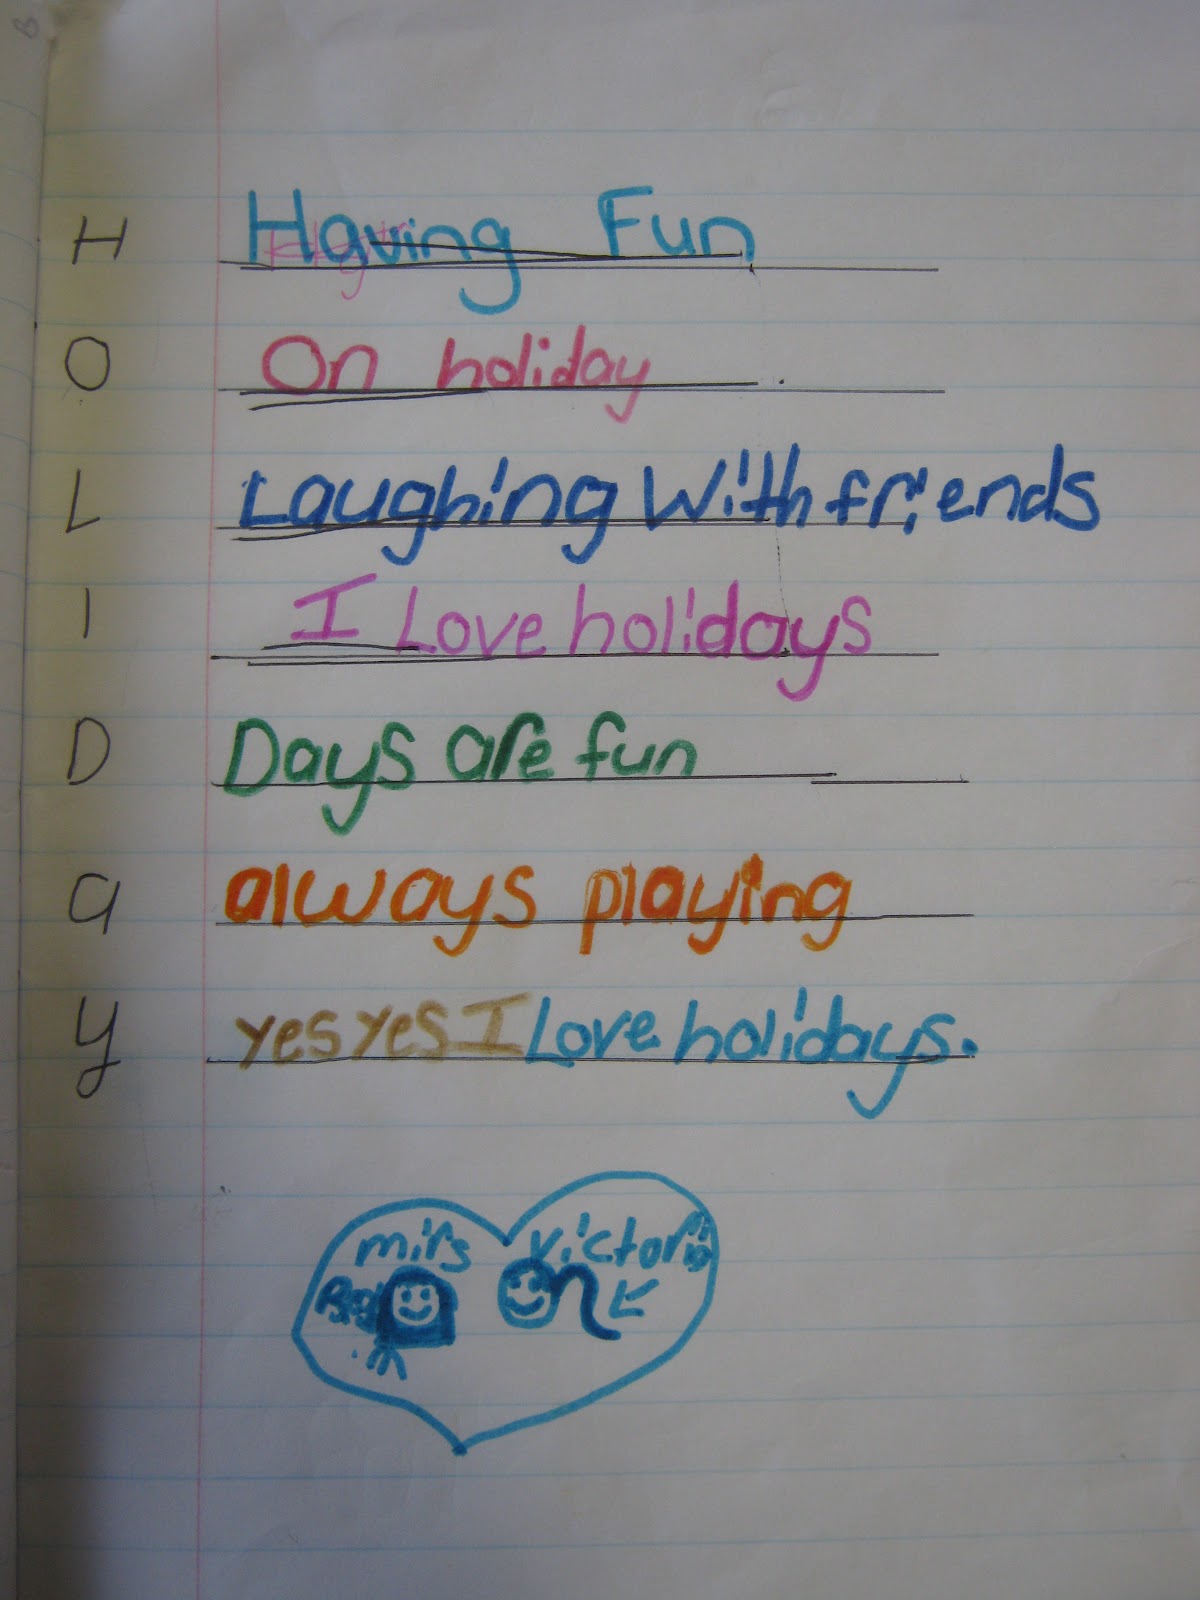 H Having Fun
O On holiday
L Laughing With friends
I I Love holidays
D Days are fun
a always playing
y yes yes I Love holidays.
mirs victoria